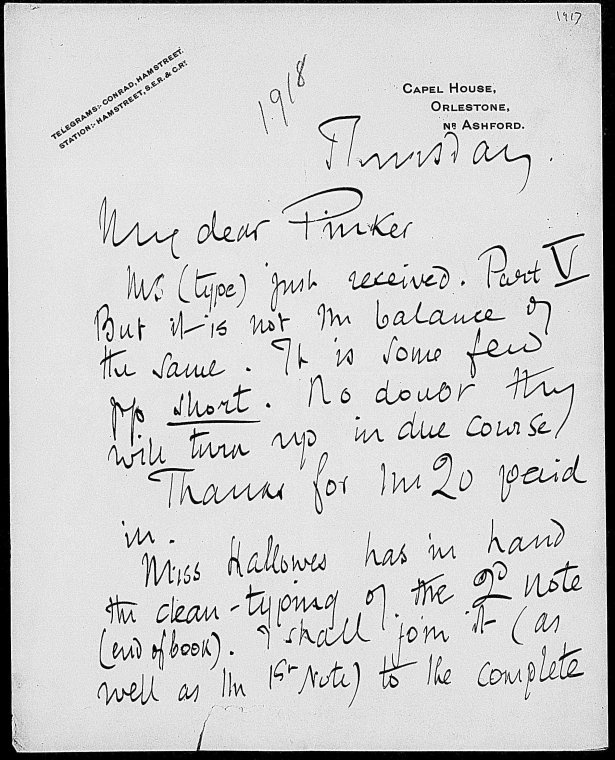 1917
TELEGRAMS:- CONRAD, HAMSTREET.
STATION:- HAMSTREET, S.E.R. & C.RY
1918
CAPEL HOUSE,
ORLESTONE,
NR ASHFORD.
Thursday.
My dear Pinker
MS (type) just received. Part V
But it is not the balance of
the same. It is some few
pp short. No doubt they
will turn up in due course/
Thanks for the 20 paid
in.
Miss Hallowes has in hand
the clean-typing of the 2d note
(end of book). I shall join it (as
well as the 1st Note) to the complete